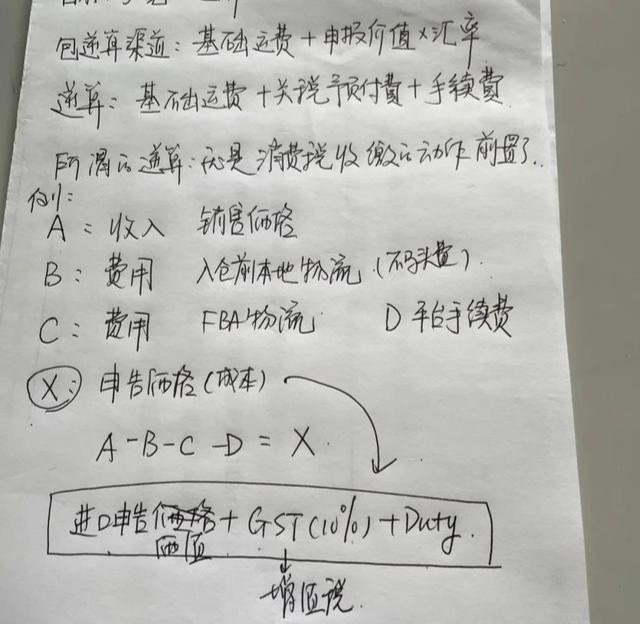 包逆算渠道：基础运费＋申报价值×汇率
逆算：基础运费＋关税预付費＋手续費
所谓的逆算：就是消费税收缴的动作前置了.
例：
A：收入 销售価格
B：费用 入仓前本地物流（不码头費）.
C：费用 FBA物流 D 平台手续费
X： 申告価格（成本）
A-B-C-D = X
进口申告価格 + GST(10%) + Duty.
価值
增值税.